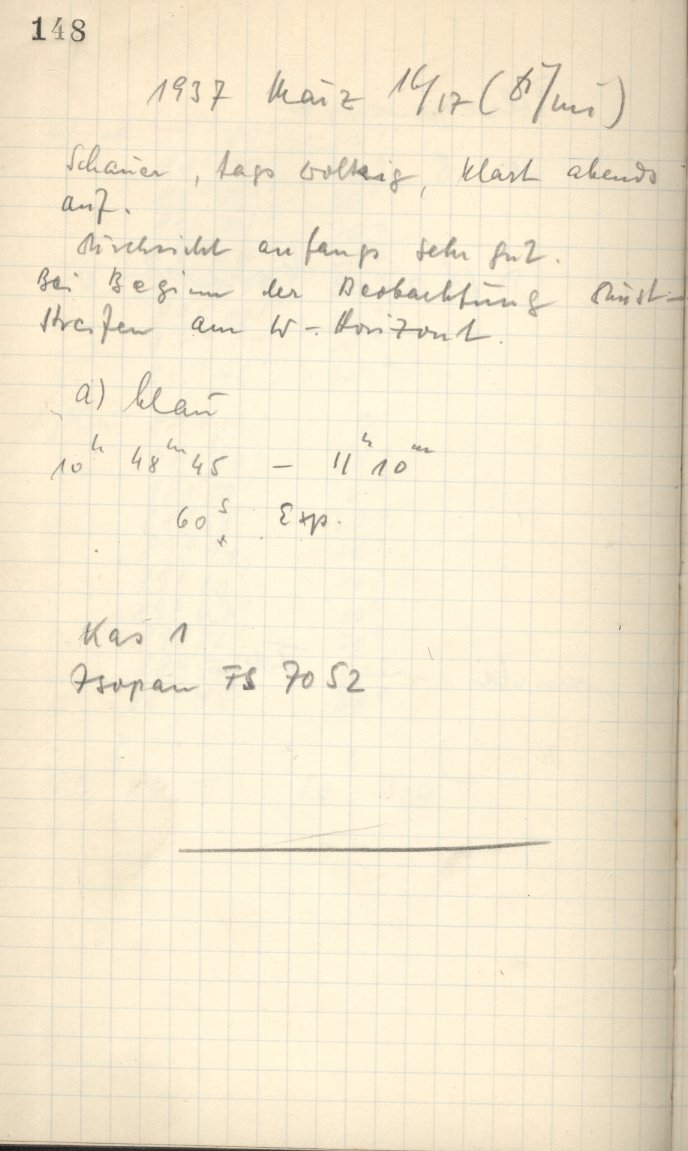 148
1937 März 16/17 (Di/Mi)
Schauer, tags wolkig, klart abends
auf.
Durchsicht anfangs sehr gut.
Bei Beginn der Beobachtung Dunst-
streifen am W-Horizont.
a) blau
10h 48m 45 – 11h 10m
60s Exp.
Kas 1
Isopan FS 7052